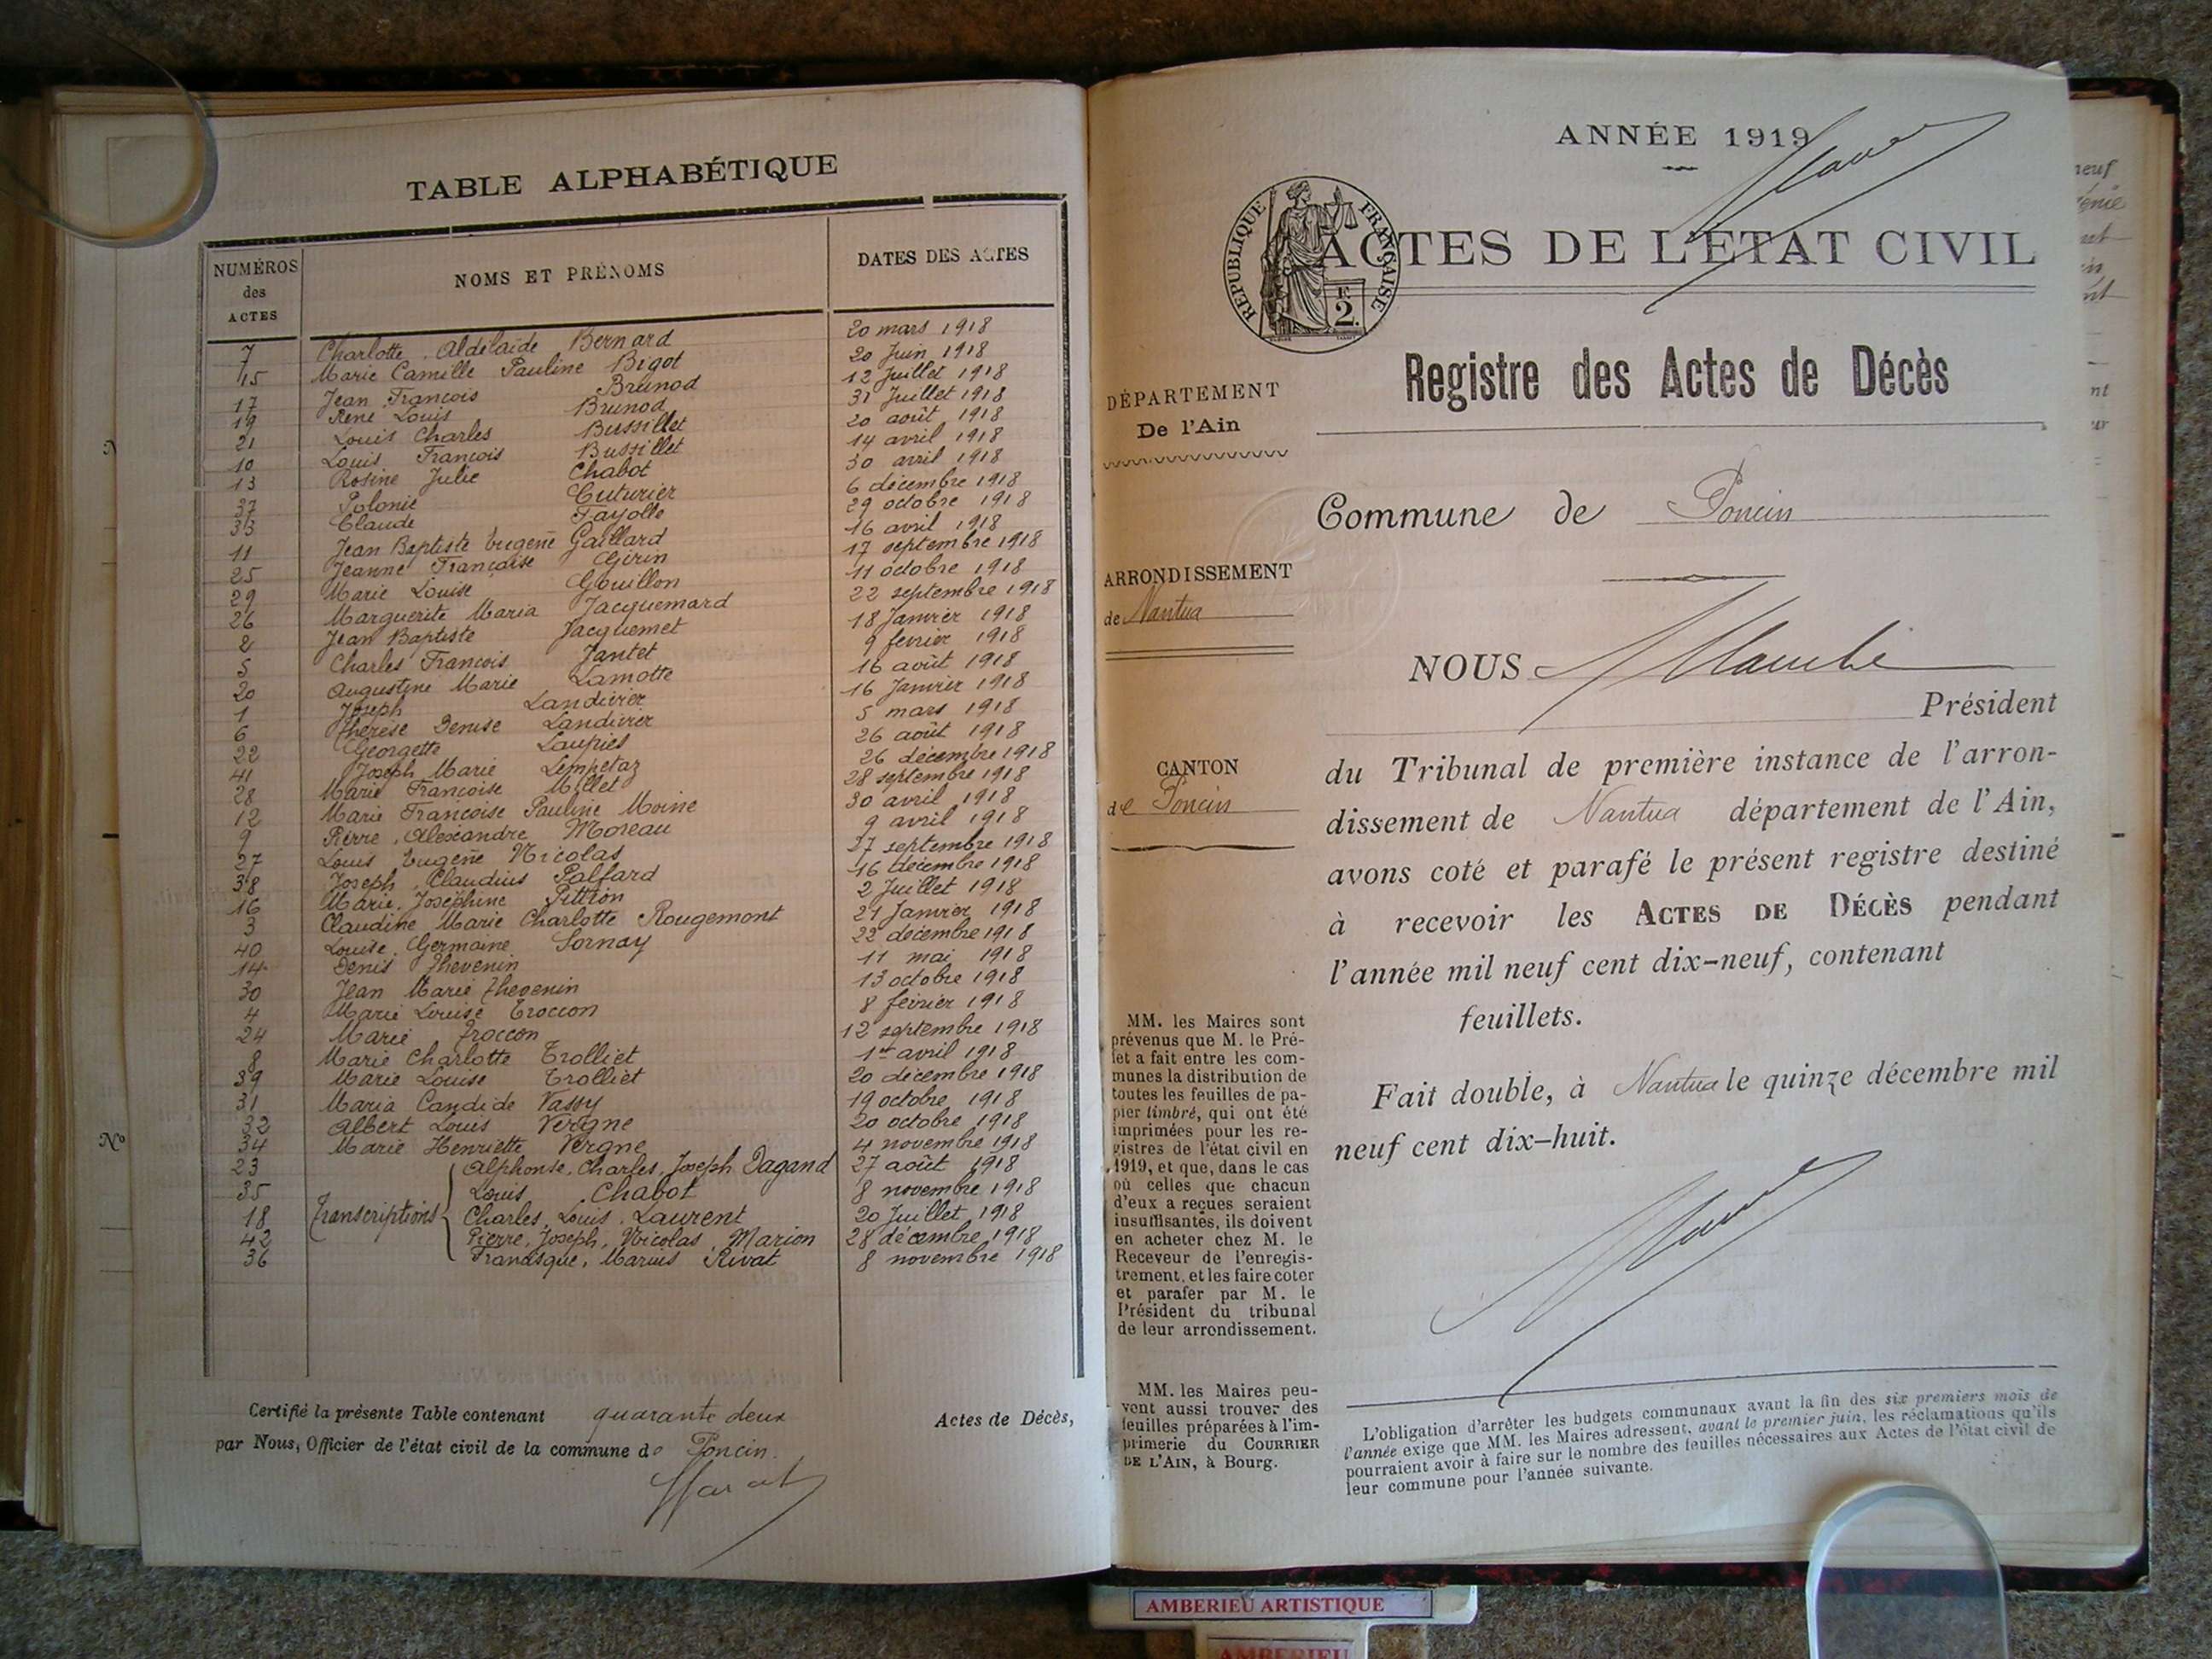 TABLE ALPHABÉTIQUE
NUMÉROS des ACTES
NOMS ET PRÉNOMS
DATES DES ACTES
7 Charlotte, Aldélaïde Bernard 20 mars 1918
15 Marie Camille Pauline Bigot 20 Juin 1918
17 Jean François Brunod 12 Juillet 1918
19 René Louis Brunod 31 Juillet 1918
21 Louis Charles Bussillet 20 août 1918
10 Louis François Bussillet 14 avril 1918
13 Rosine Julie Chabot 30 avril 1918
37 Polonie Cuturier 6 décembre 1918
33 Claude Fayolle 29 octobre 1918
11 Jean Baptiste Eugène Gaillard 16 avril 1918
25 Jeanne Françoise Girin 17 septembre 1918
29 Marie Louise Gouillon 11 octobre 1918
26 Marguerite Maria Jacquemard 22 septembre 1918
2 Jean Baptiste Jacquemet 18 Janvier 1918
5 Charles François Jantet 9 fevrier 1918
20 Augustine Marie Lamotte 16 août 1918
1 Joseph Landivier 16 Janvier 1918
6 Thérèse Denise Landivier 5 mars 1918
22 Georgette Laupies 26 août 1918
41 Joseph Marie Lempetaz 26 décembre 1918
28 Marie Françoise Millet 28 septembre 1918
12 Marie Françoise Pauline Moine 30 avril 1918
9 Pierre, Alexandre Moreau 9 avril 1918
27 Louis Eugène Nicolas 27 septembre 1918
38 Joseph, Claudius Palfard 16 décembre 1918
16 Marie, Joséphine Pittion 2 Juillet 1918
3 Claudine Marie Charlotte Rougemont 21 Janvier 1918
40 Louise, Germaine Sornay 22 decembre 1918
14 Denis Thevenin 11 mai 1918
30 Jean Marie Thevenin 13 octobre 1918
4 Marie Louise Troccon 8 fevrier 1918
24 Marie Troccon 12 septembre 1918
8 Marie Charlotte Trolliet 1er avril 1918
39 Marie Louise Trolliet 20 décembre 1918
31 Maria Candide Vassy 19 octobre 1918
32 Albert Louis Vergne 20 octobre 1918
34 Marie Henriette Vergne 4 novembre 1918
23 Alphonse, Charles, Joseph Dagand 27 août 1918
35 Louis Chabot 8 novembre 1918
18 Transcriptions Charles, Louis, Laurent 20 Juillet 1918
42 Pierre, Joseph, Nicolas, Marion 28 décembre 1918
36 Franasque, Marius Rivat 8 novembre 1918
Certifié la présente Table contenant quarante deux Actes de Décès,
par Nous, Officier de l'état civil de la commune de Poncin.
Nº
ANNÉE 1919
RÉPUBLIQUE FRANÇAISE
2
ACTES DE L'ÉTAT CIVIL
Registre des Actes de Décès
DÉPARTEMENT
De l'Ain
Commune de Poncin
ARRONDISSEMENT
de Nantua
NOUS
Président
CANTON
de Poncin
du Tribunal de première instance de l'arron-
dissement de Nantua département de l'Ain,
avons coté et parafé le présent registre destiné
à recevoir les ACTES DE DÉCÈS pendant
l'année mil neuf cent dix-neuf, contenant
feuillets.
Fait double, à Nantua le quinze décembre mil
neuf cent dix-huit.
MM. les Maires sont
prévenus que M. le Pré-
fet a fait entre les com-
munes la distribution de
toutes les feuilles de pa-
pier timbré, qui ont été
imprimées pour les re-
gistres de l'état civil en
1919, et que, dans le cas
où celles que chacun
d'eux a reçues seraient
insuffisantes, ils doivent
en acheter chez M. le
Receveur de l'enregis-
trement, et les faire coter
et parafer par M. le
Président du tribunal
de leur arrondissement.
MM. les Maires peu-
vent aussi trouver des
feuilles préparées à l'im-
primerie du COURRIER
DE L'AIN, à Bourg.
L'obligation d'arrêter les budgets communaux avant la fin des six premiers mois de
l'année exige que MM. les Maires adressent, avant le premier juin, les réclamations qu'ils
pourraient avoir à faire sur le nombre des feuilles nécessaires aux Actes de l'état civil de
leur commune pour l'année suivante.
AMBERIEU ARTISTIQUE
AMBERIEU